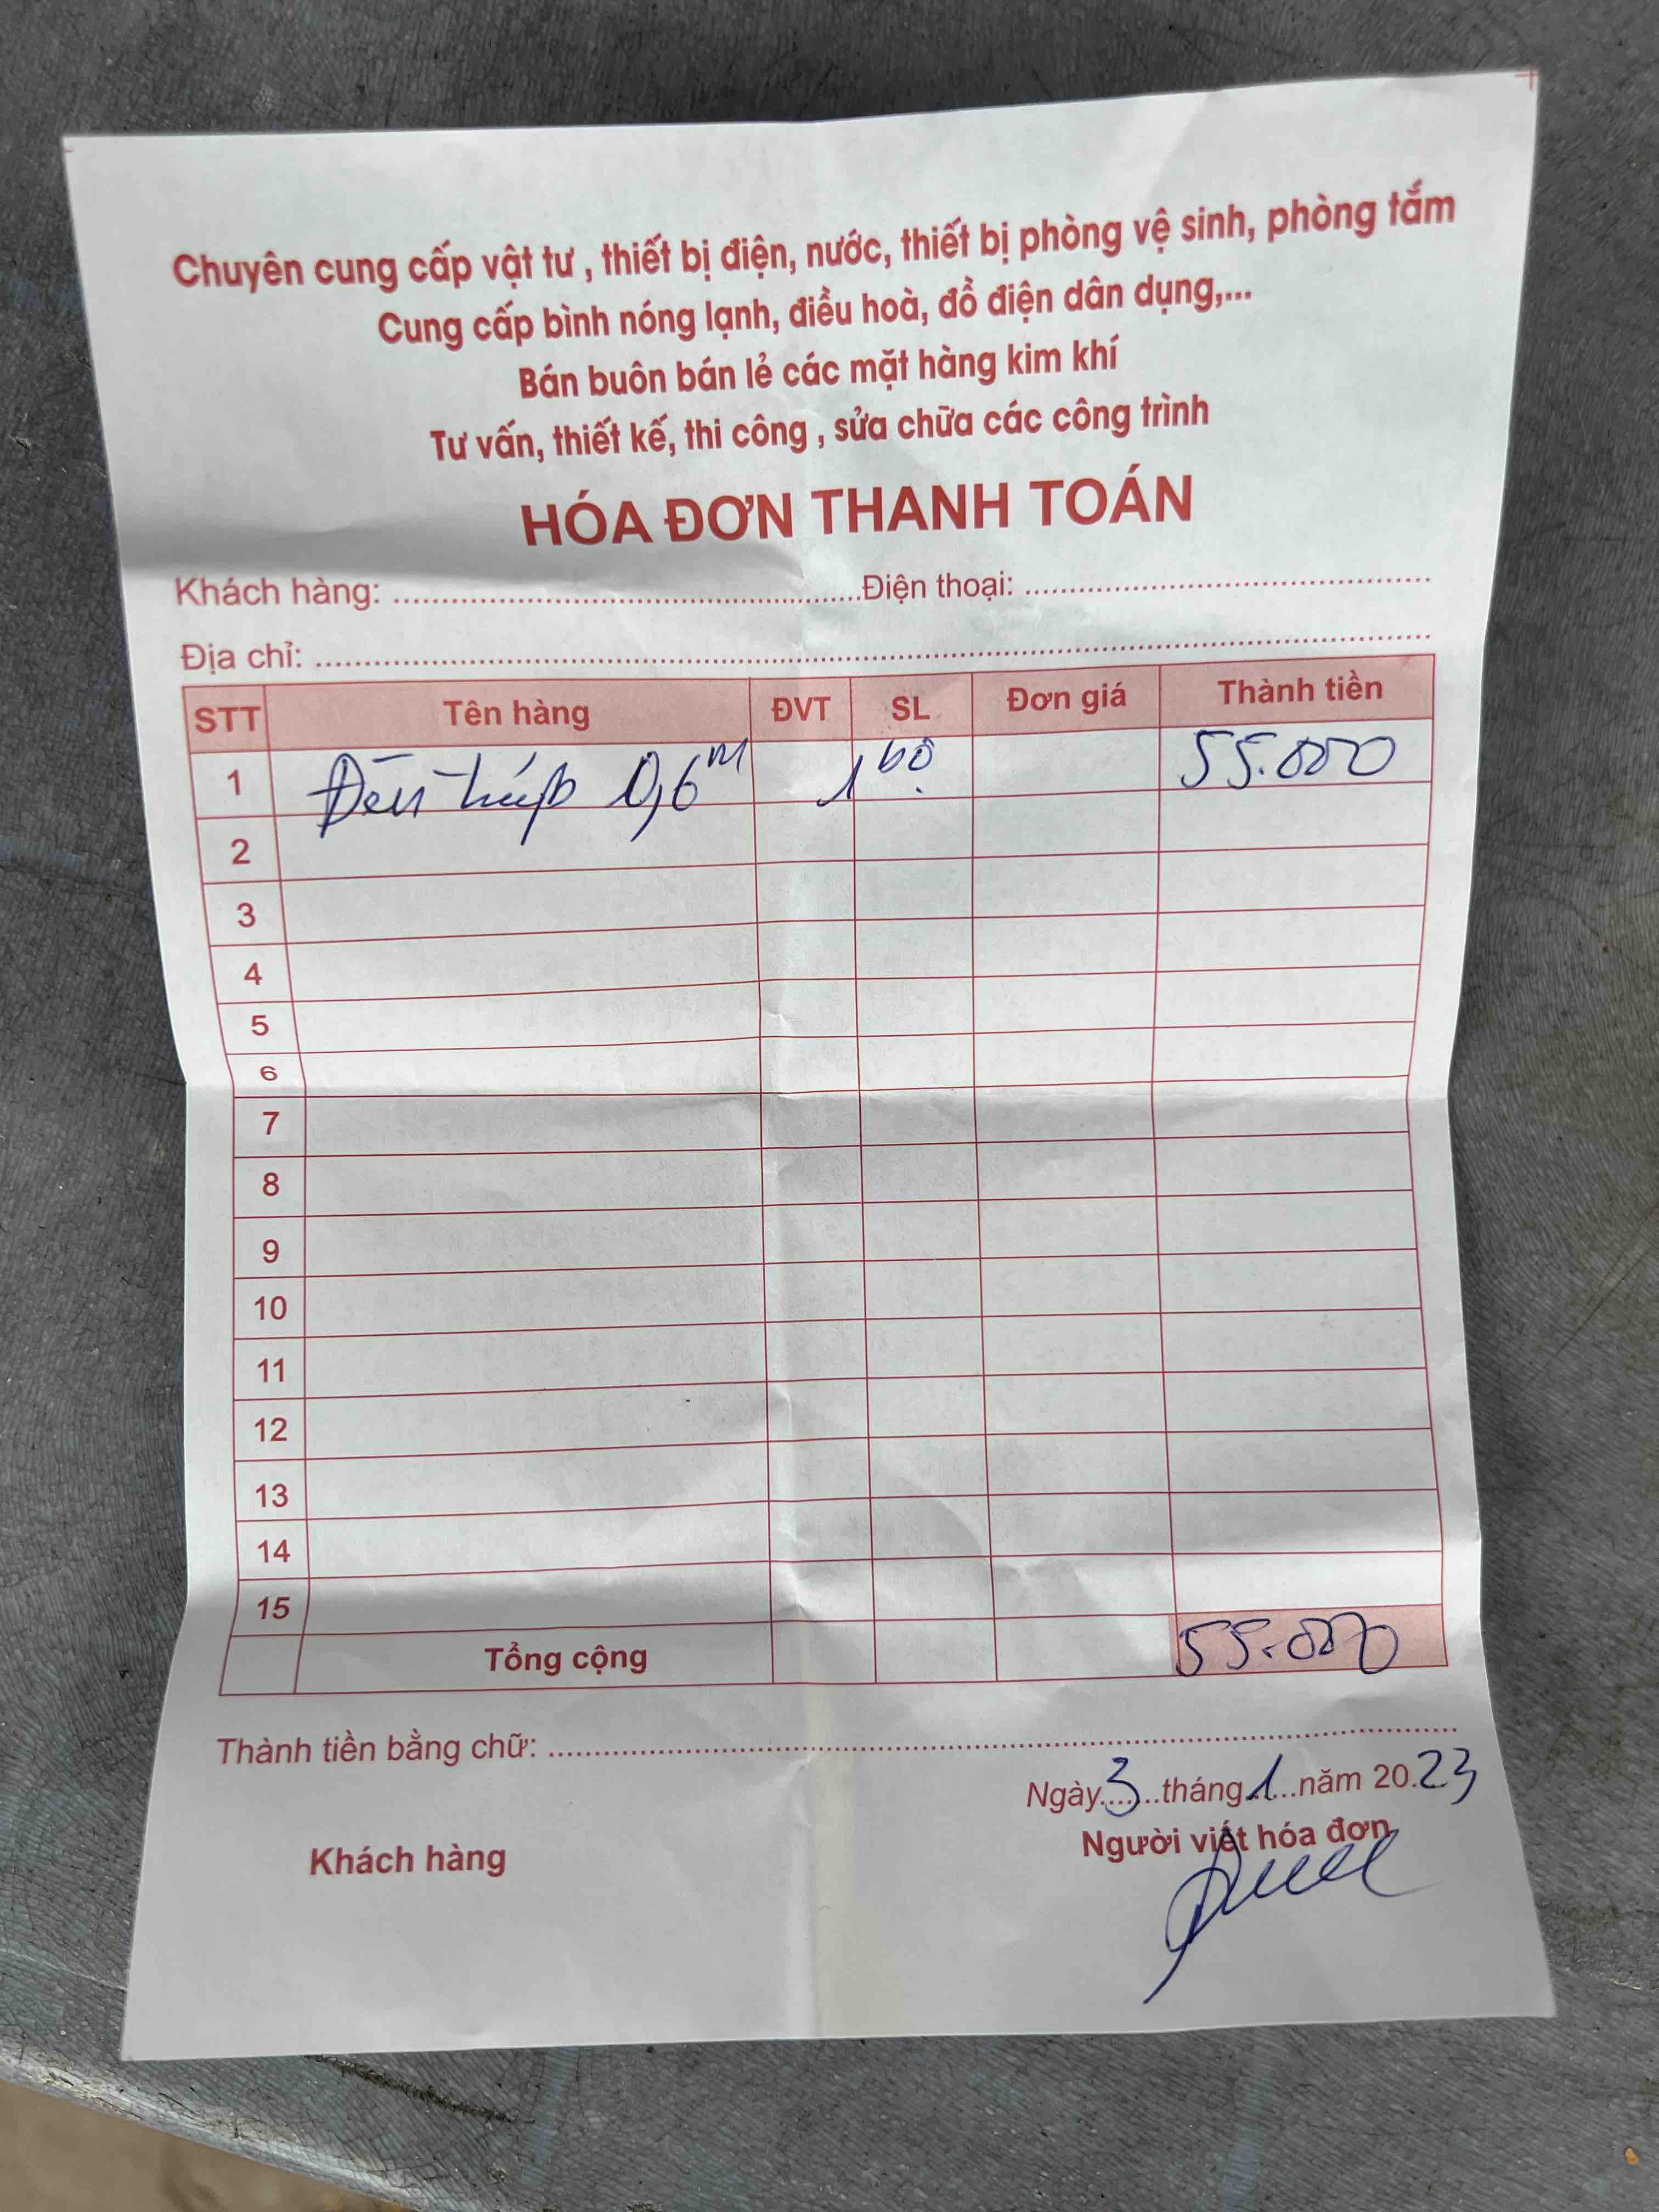 Chuyên cung cấp vật tư , thiết bị điện, nước, thiết bị phòng vệ sinh, phòng tắm
Cung cấp bình nóng lạnh, điều hoà, đồ điện dân dụng,...
Bán buôn bán lẻ các mặt hàng kim khí
Tư vấn, thiết kế, thi công , sửa chữa các công trình
HÓA ĐƠN THANH TOÁN
Khách hàng: ............ Điện thoại: ............
Địa chỉ: ............
STT Tên hàng ĐVT SL Đơn giá Thành tiền
1 Đèn 0,6m 1 bộ 55.000
2
3
4
5
6
7
8
9
10
11
12
13
14
15
Tổng cộng 55.000
Thành tiền bằng chữ: ............
Ngày 3 tháng 1 năm 2023
Khách hàng Người viết hóa đơn